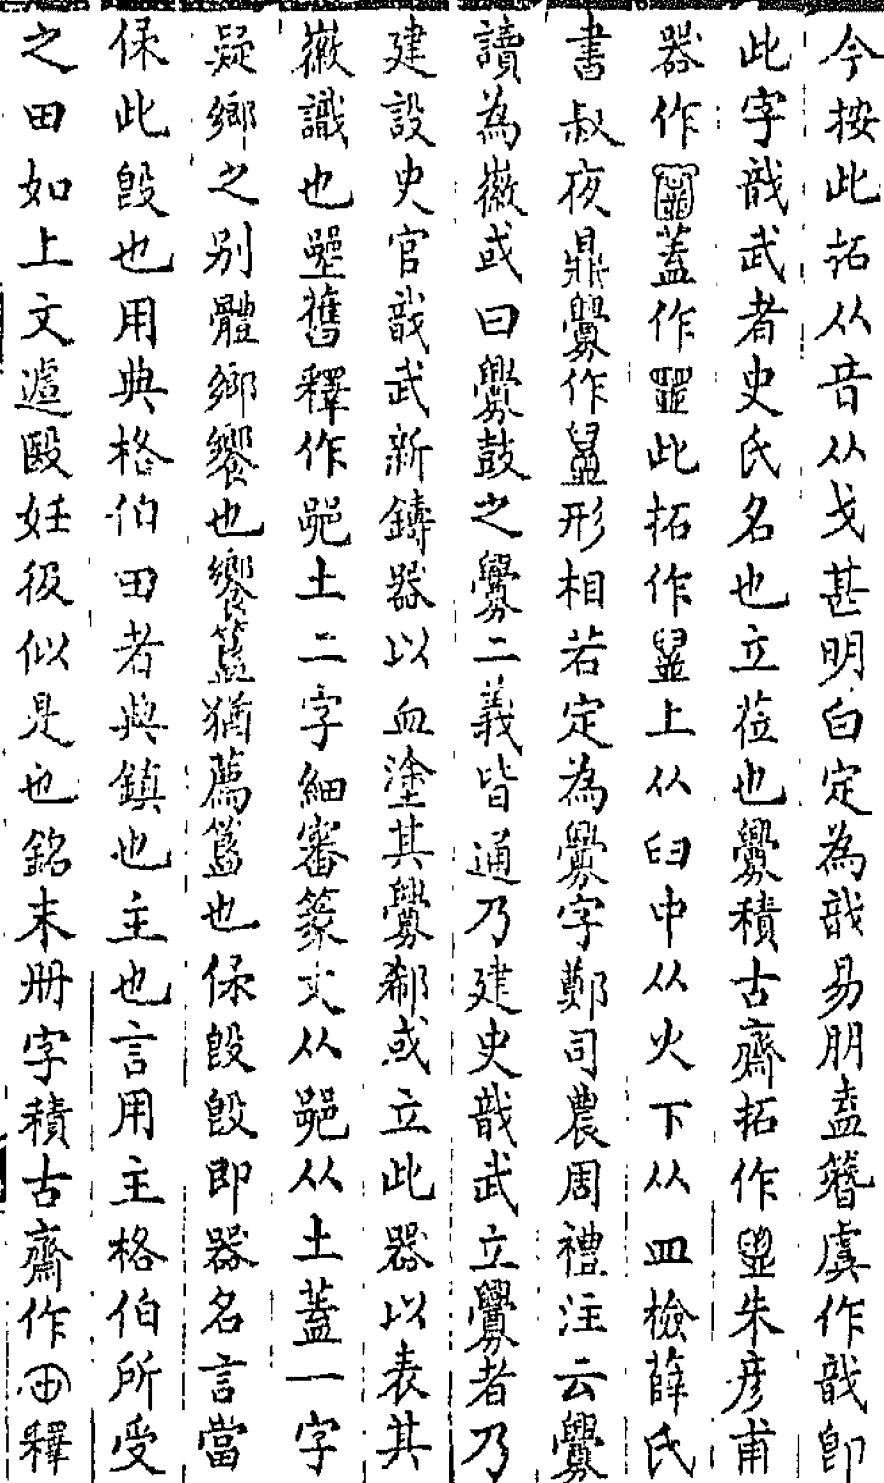 今按此拓从音从戈甚明白定為戠易朋盍簪虞作戠卽
此字戠武者史氏名也立莅也釁積古齋拓作朱彦甫
器作蓋作此拓作上从臼中从火下从皿檢薛氏
書叔夜鼎釁作形相若定為釁字鄭司農周禮注云釁
讀為徽或曰釁鼓之釁二義皆通乃建史戠武立釁者乃
建設史官戠武新鑄器以血塗其釁郄或立此器以表其
徽識也舊釋作土二字細審篆文从从土蓋一字
疑鄉之别體鄉饗也饗簋猶薦簋也保𣪘𣪘即器名言當
保此𣪘也用典格伯田者典鎮也主也言用主格伯所受
之田如上文遽毆妊彶似是也銘末册字積古齋作釋